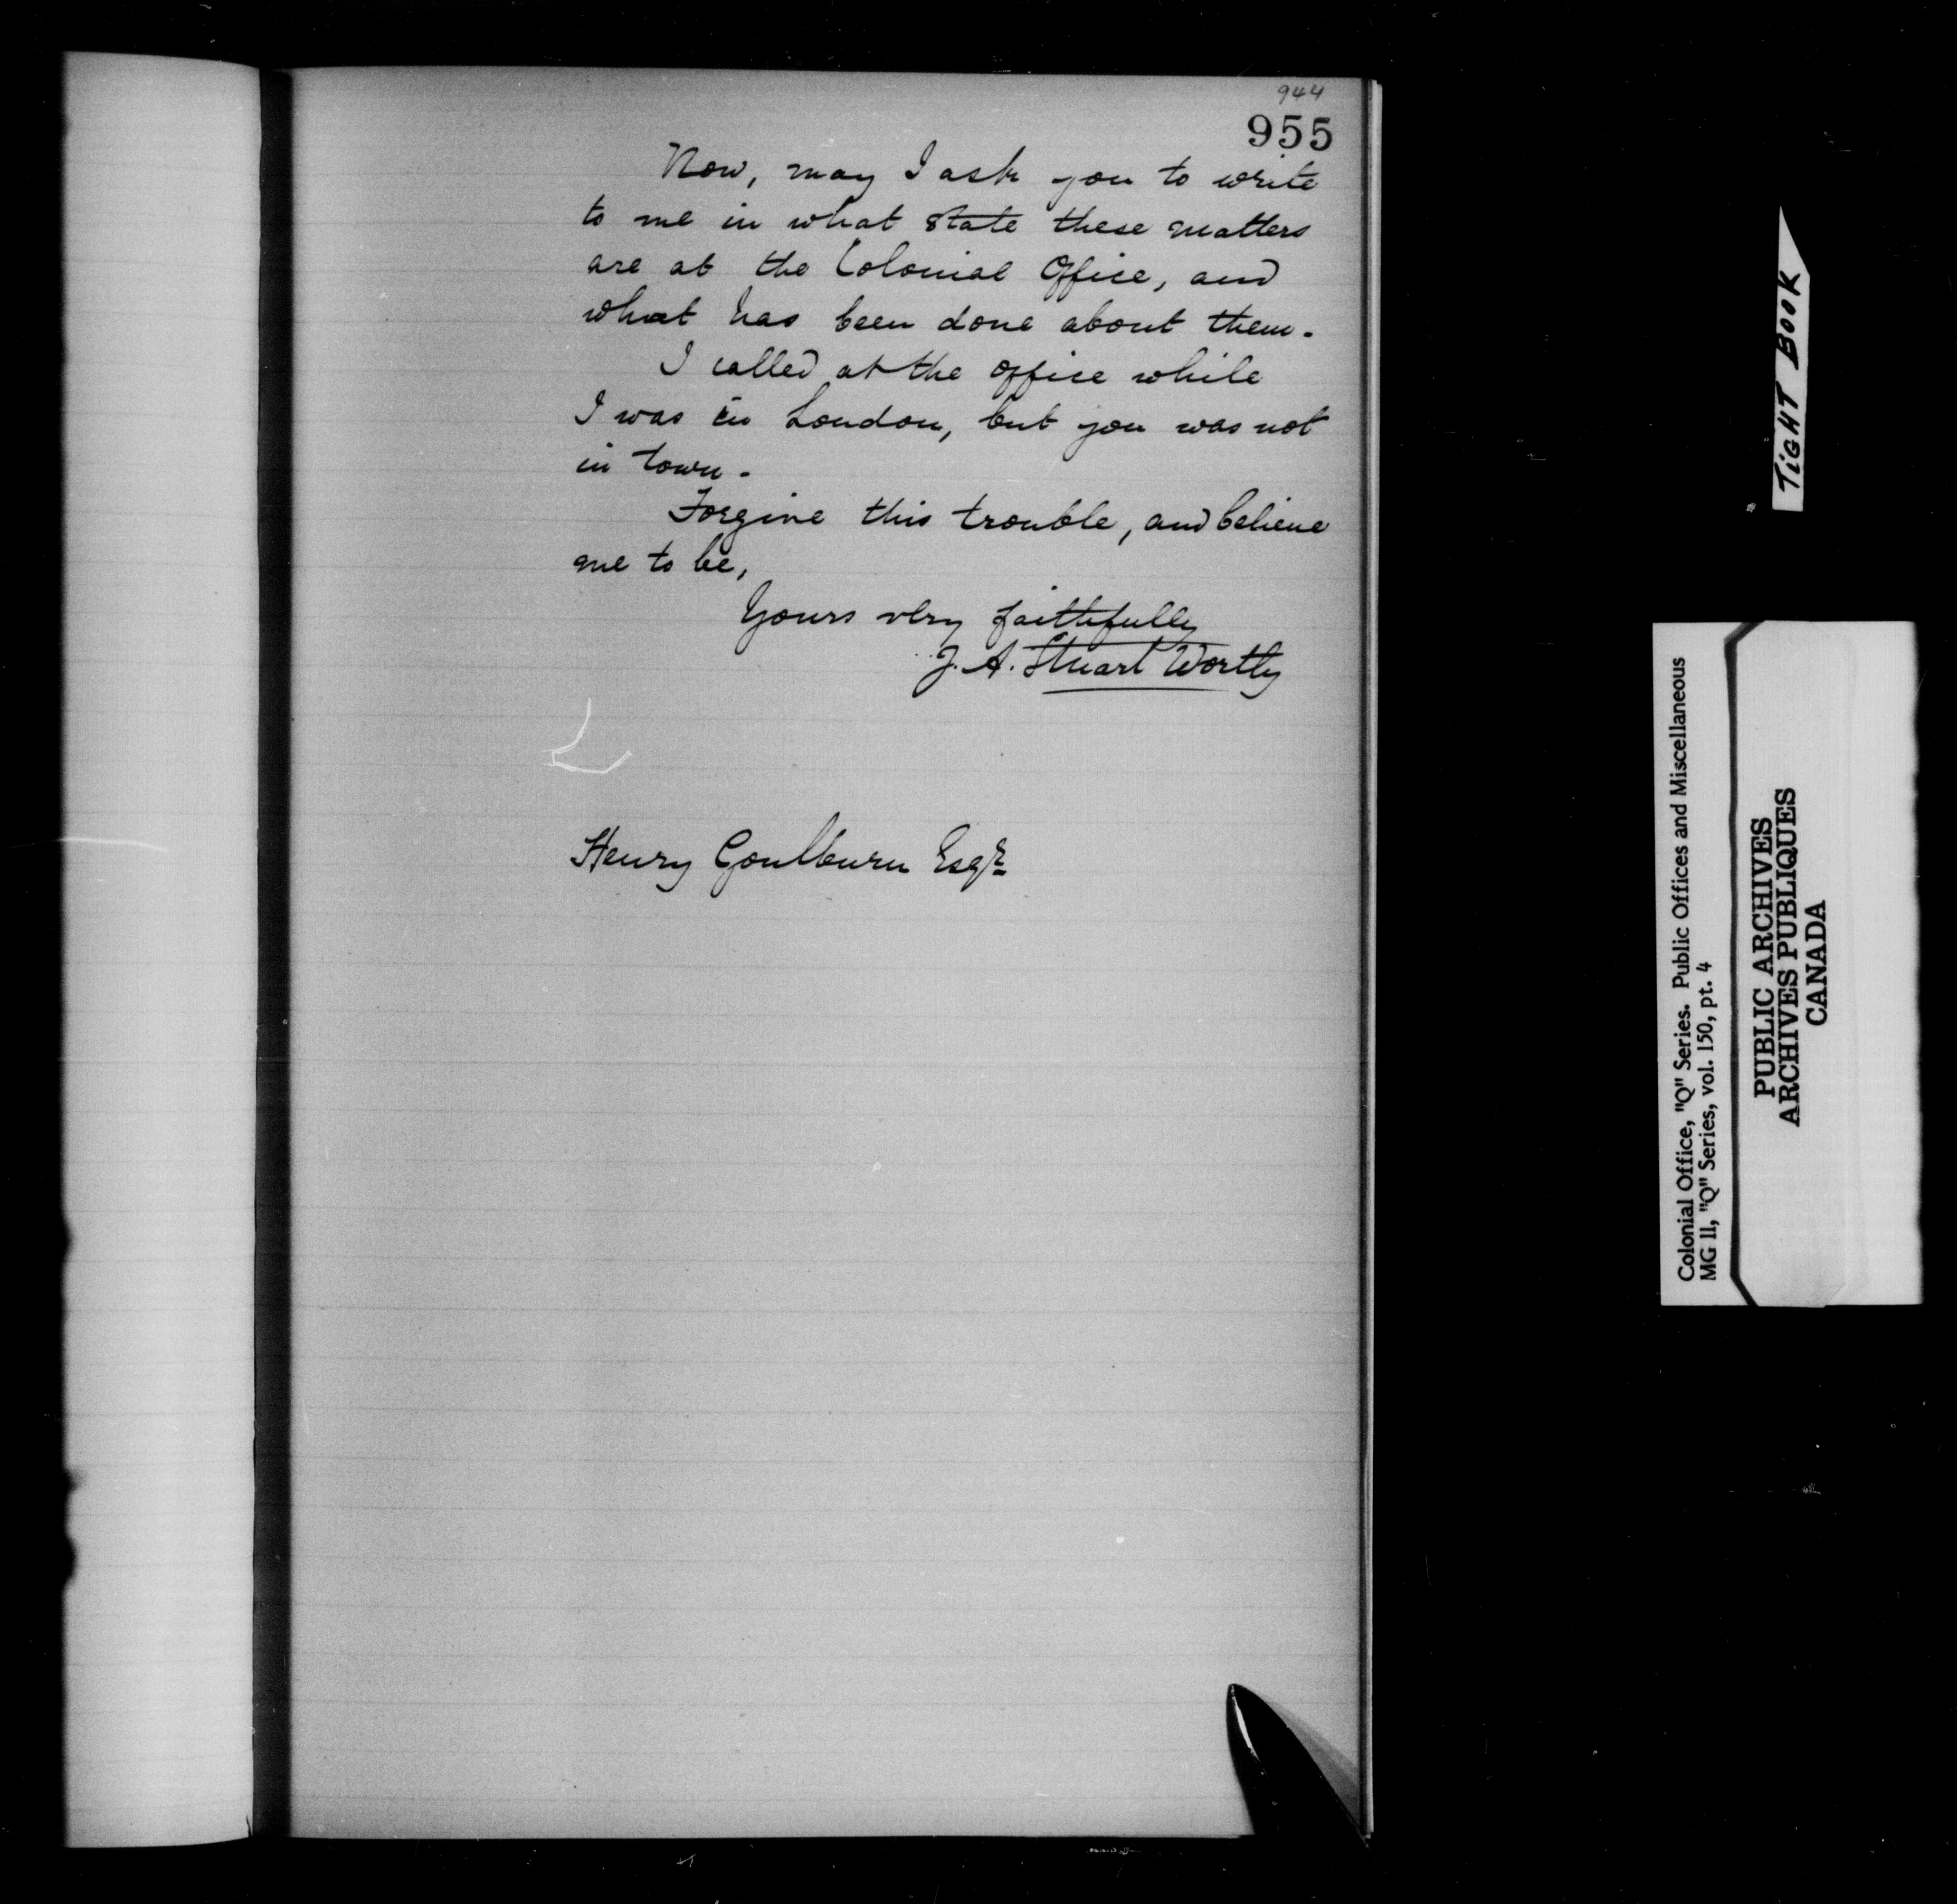 944
955
Now, may I ask you to write
to me in what state these matters
are at the Colonial Office, and
what has been done about them.
I called at the office while
I was in London, but you was not
in town.
Forgive this trouble, and believe
me to be,
Yours very faithfully
J. A. Stuart Wortly
Henry Goulburn Esqr
TIGHT BOOK
Colonial Office, "Q" Series. Public Offices and Miscellaneous
MG 11, "Q" Series, vol. 150, pt. 4
PUBLIC ARCHIVES
ARCHIVES PUBLIQUES
CANADA